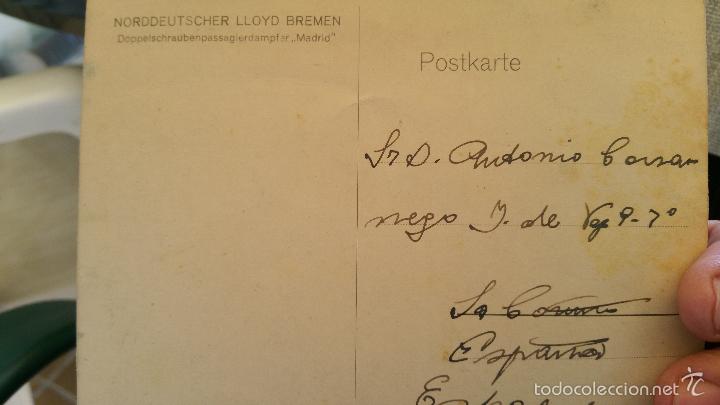 NORDDEUTSCHER LLOYD BREMEN
Doppelschraubenpassagierdampfer „Madrid"
Postkarte
Sr D. Antonio Corsa-
nego J. de 9-7º
La Coruña
España
todocoleccion.net